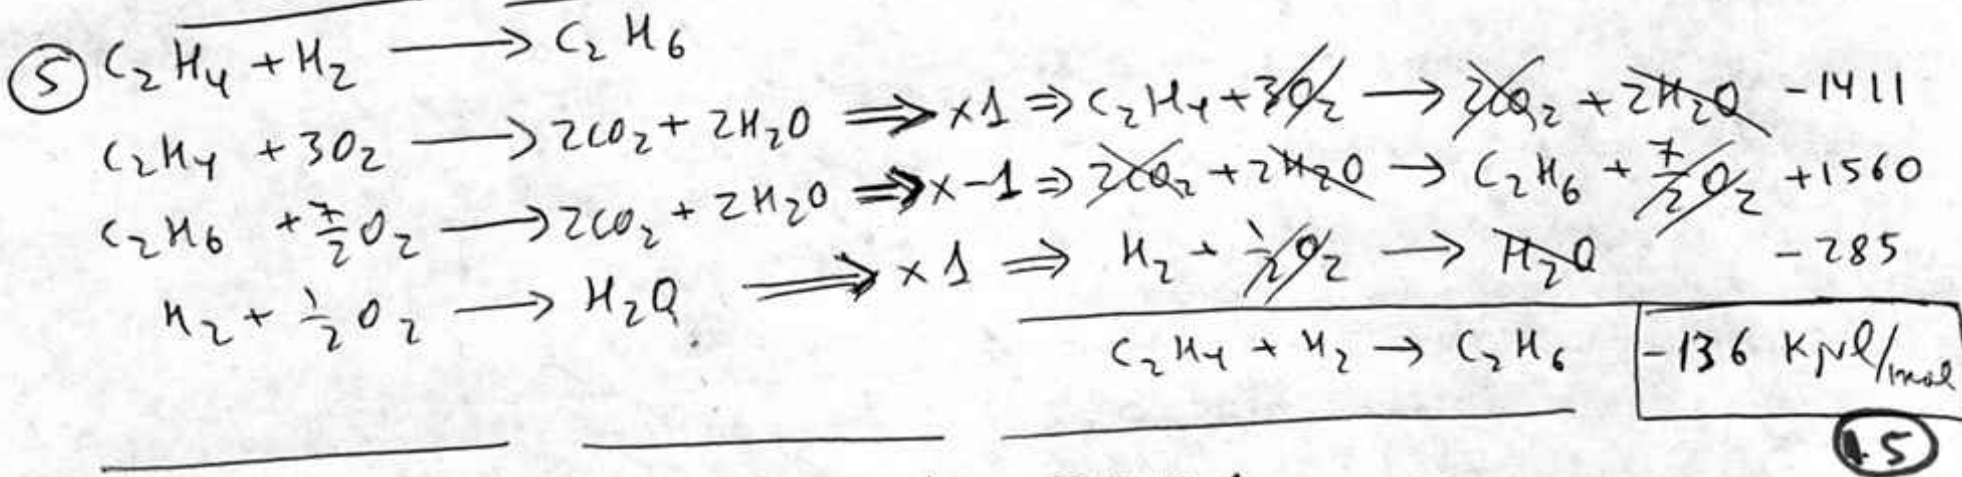 ⑤ C₂H₄ + H₂ ⟶ C₂H₆
C₂H₄ + 3O₂ ⟶ 2CO₂ + 2H₂O ⟹ ×1 ⇒ C₂H₄ + 3O₂ ⟶ 2CO₂ + 2H₂O -1411
C₂H₆ + 7/2 O₂ ⟶ 2CO₂ + 2H₂O ⟹ ×-1 ⇒ 2CO₂ + 2H₂O → C₂H₆ + 7/2 O₂ +1560
H₂ + 1/2 O₂ ⟶ H₂O ⟹ ×1 ⇒ H₂ + 1/2 O₂ ⟶ H₂O -285
C₂H₄ + H₂ → C₂H₆ -136 Kjul/mol
1.5